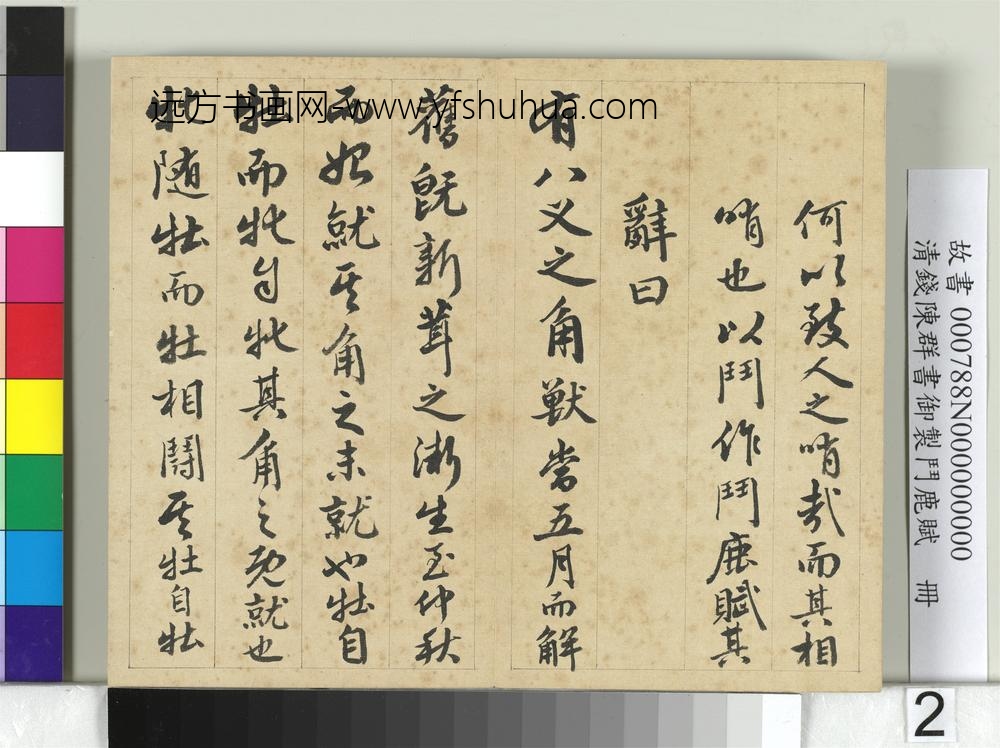 何以致人之哨哉而其相
哨也以鬥作鬥鹿賦其
辭曰
有八义之角獸當五月而解
舊既新茸之漸生至仲秋
而始就其角之未就也牡自
牡而牝自牝其角之既就也
牝随牡而牡相鬪其牡自牡
远方书画网-www.yfshuhua.com
故書 000788N000000000
清錢陳群書御製鬥鹿賦 冊
2